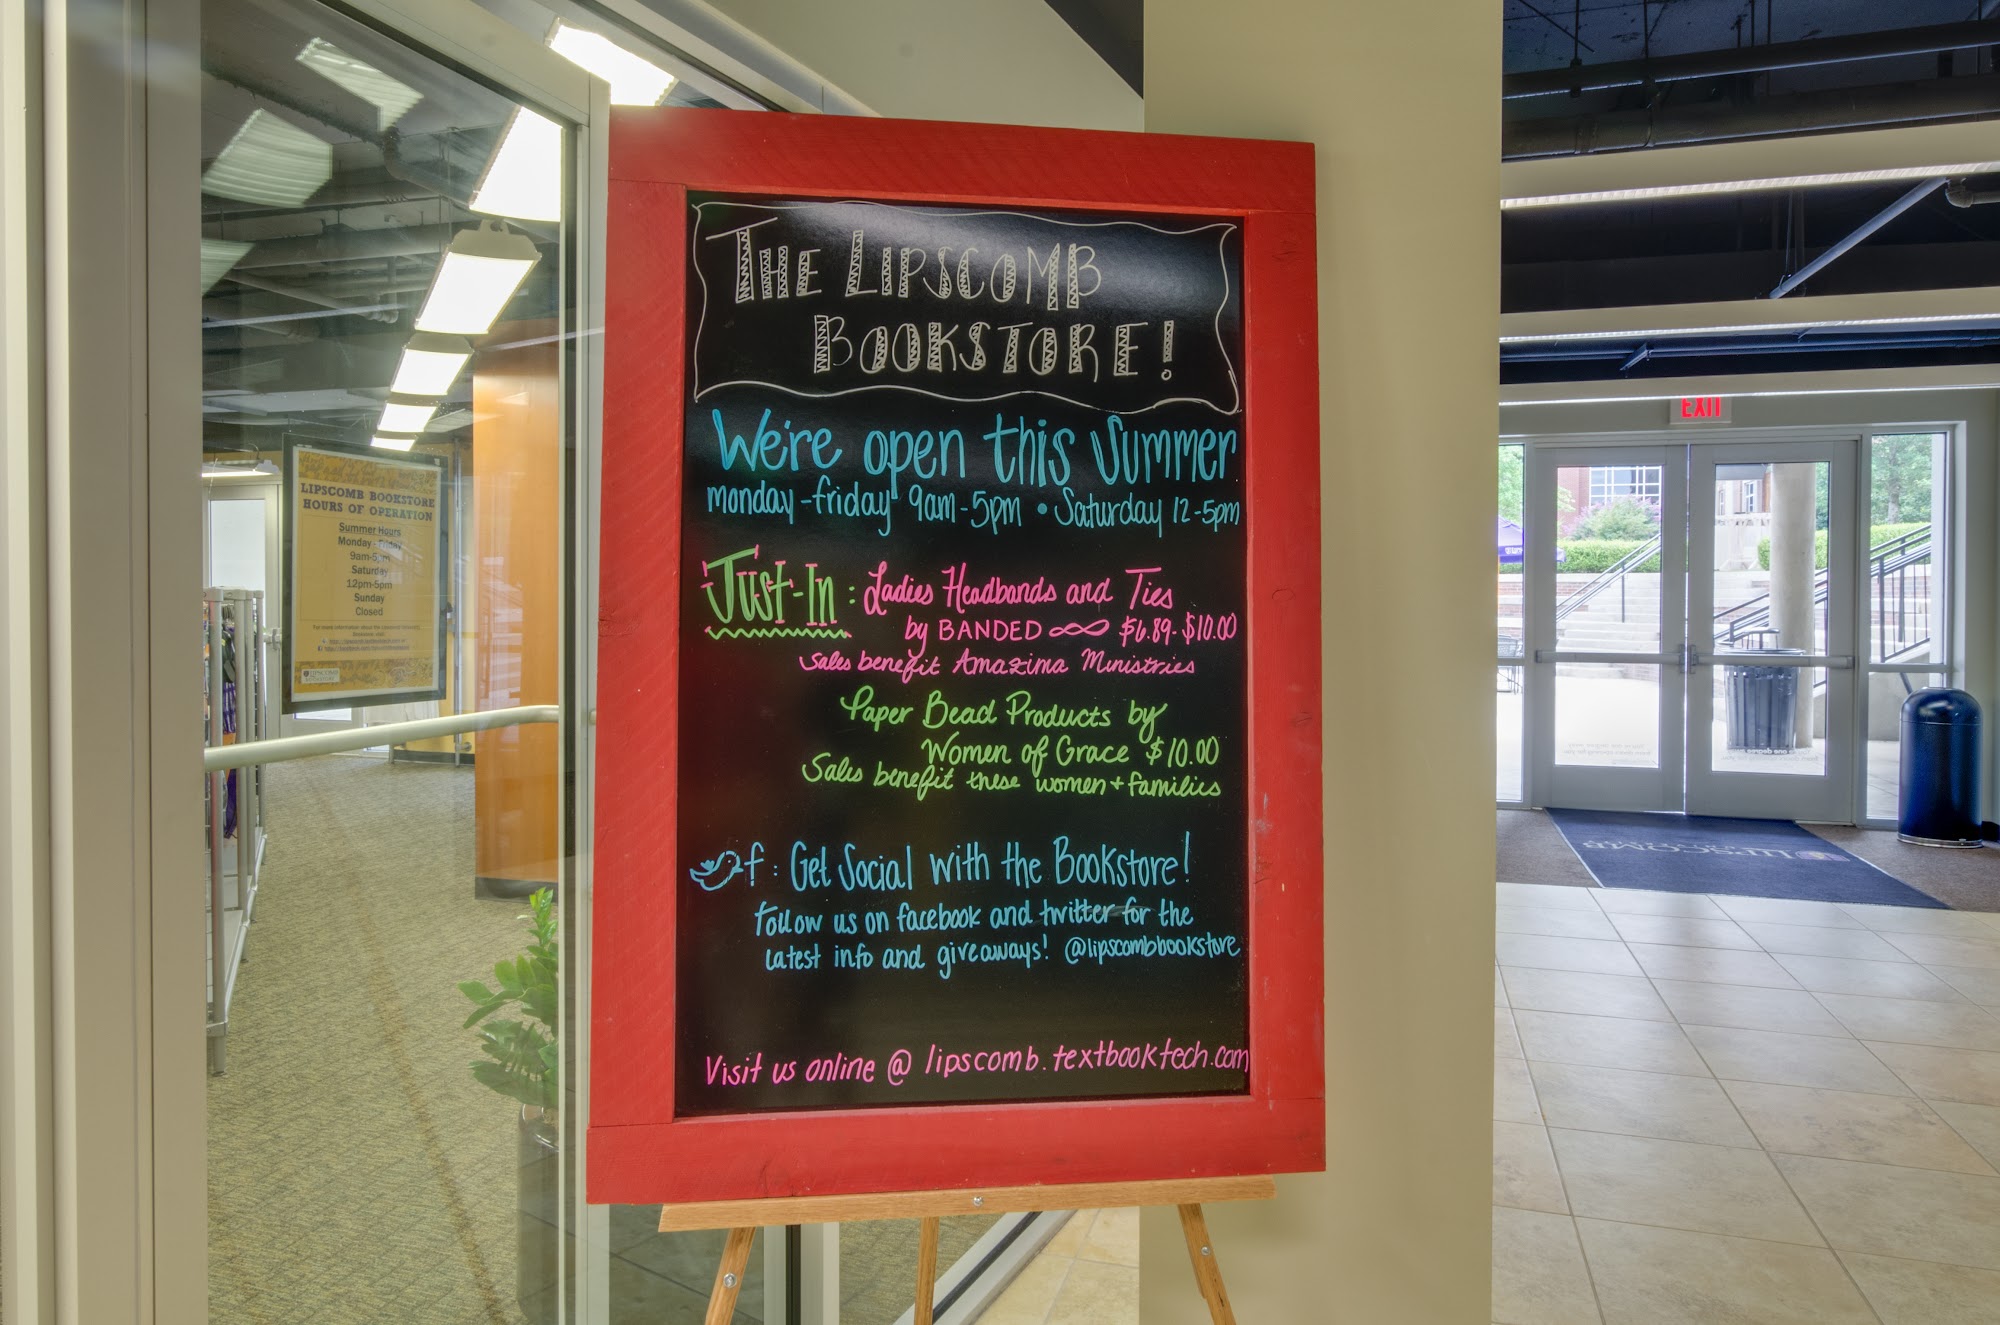 THE LIPSCOMB
BOOKSTORE!
We're open this Summer
monday-friday 9am-5pm • Saturday 12-5pm
JUST-IN: Ladies Headbands and Ties
by BANDED $6.89-$10.00
Sales benefit Amazima Ministries
Paper Bead Products by
Women of Grace $10.00
Sales benefit these women + families
f: Get Social with the Bookstore!
Follow us on facebook and twitter for the
latest info and giveaways! @lipscombbookstore
Visit us online @ lipscomb.textbooktech.com
LIPSCOMB BOOKSTORE
HOURS OF OPERATION
Summer Hours
Monday - Friday
9am-5pm
Saturday
12pm-5pm
Sunday
Closed
EXIT
LIPSCOMB